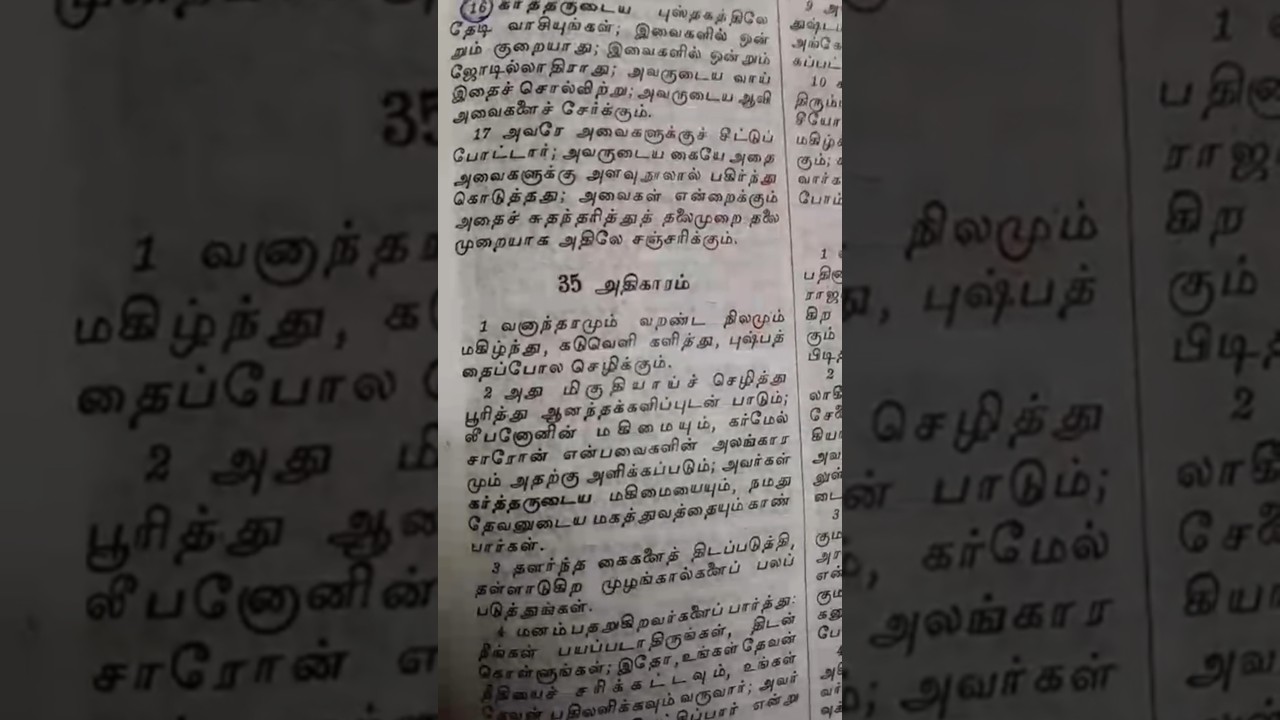 16 கர்த்தருடைய புஸ்தகத்திலே
தேடி வாசியுங்கள்; இவைகளில் ஒன்
றும் குறையாது; இவைகளில் ஒன்றும்
ஜோடில்லாதிராது; அவருடைய வாய்
இதைச் சொல்லிற்று; அவருடைய ஆவி
அவைகளைச் சேர்க்கும்.
17 அவரே அவைகளுக்குச் சீட்டுப்
போட்டார்; அவருடைய கையே அதை
அவைகளுக்கு அளவுநூலால் பகிர்ந்து
கொடுத்தது; அவைகள் என்றைக்கும்
அதைச் சுதந்தரித்துத் தலைமுறை தலை
முறையாக அதிலே சஞ்சரிக்கும்.
35 அதிகாரம்
1 வனாந்தரமும் வறண்ட நிலமும்
மகிழ்ந்து, கடுவெளி களித்து, புஷ்பத்
தைப்போல செழிக்கும்.
2 அது மிகுதியாய்ச் செழித்து
பூரித்து ஆனந்தக்களிப்புடன் பாடும்;
லீபனோனின் மகிமையும், கர்மேல்
சாரோன் என்பவைகளின் அலங்கார
மும் அதற்கு அளிக்கப்படும்; அவர்கள்
கர்த்தருடைய மகிமையையும், நமது
தேவனுடைய மகத்துவத்தையும் காண்
பார்கள்.
3 தளர்ந்த கைகளைத் திடப்படுத்தி,
தள்ளாடுகிற முழங்கால்களைப் பலப்
படுத்துங்கள்.
4 மனம்பதறுகிறவர்களைப் பார்த்து:
நீங்கள் பயப்படாதிருங்கள், திடன்
கொள்ளுங்கள்; இதோ, உங்கள் தேவன்
நீதியைச் சரிக்கட்டவும், உங்கள்
தேவன் பதிலளிக்கவும் வருவார்; அவர்
என்று